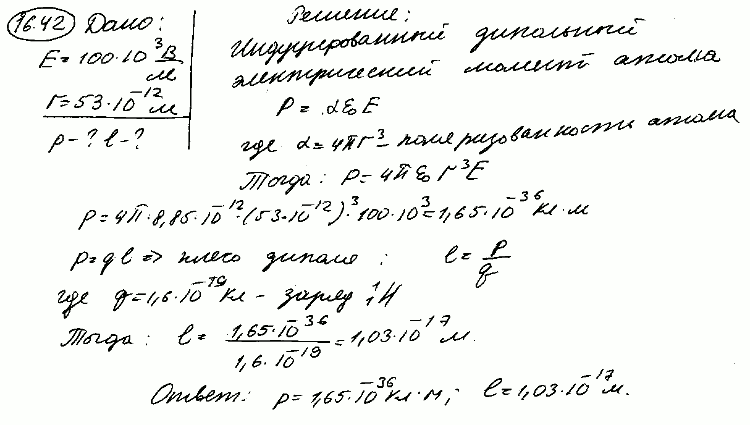 16.42 Дано:
E=100·10³ В/м
r=53·10⁻¹² м
p-? l-?
Решение:
Индуцированный дипольный
электрический момент атома
P = αε₀E
где α=4πr³ - поляризованность атома
Тогда: P=4πε₀r³E
P=4π·8,85·10⁻¹²·(53·10⁻¹²)³·100·10³=1,65·10⁻³⁶ Кл·м
p=ql => плечо диполя: l=p/q
где q=1,6·10⁻¹⁹ Кл - заряд ¹₁H
Тогда: l= 1,65·10⁻³⁶/1,6·10⁻¹⁹ =1,03·10⁻¹⁷ м.
Ответ: p=1,65·10⁻³⁶ Кл·м; l=1,03·10⁻¹⁷ м.